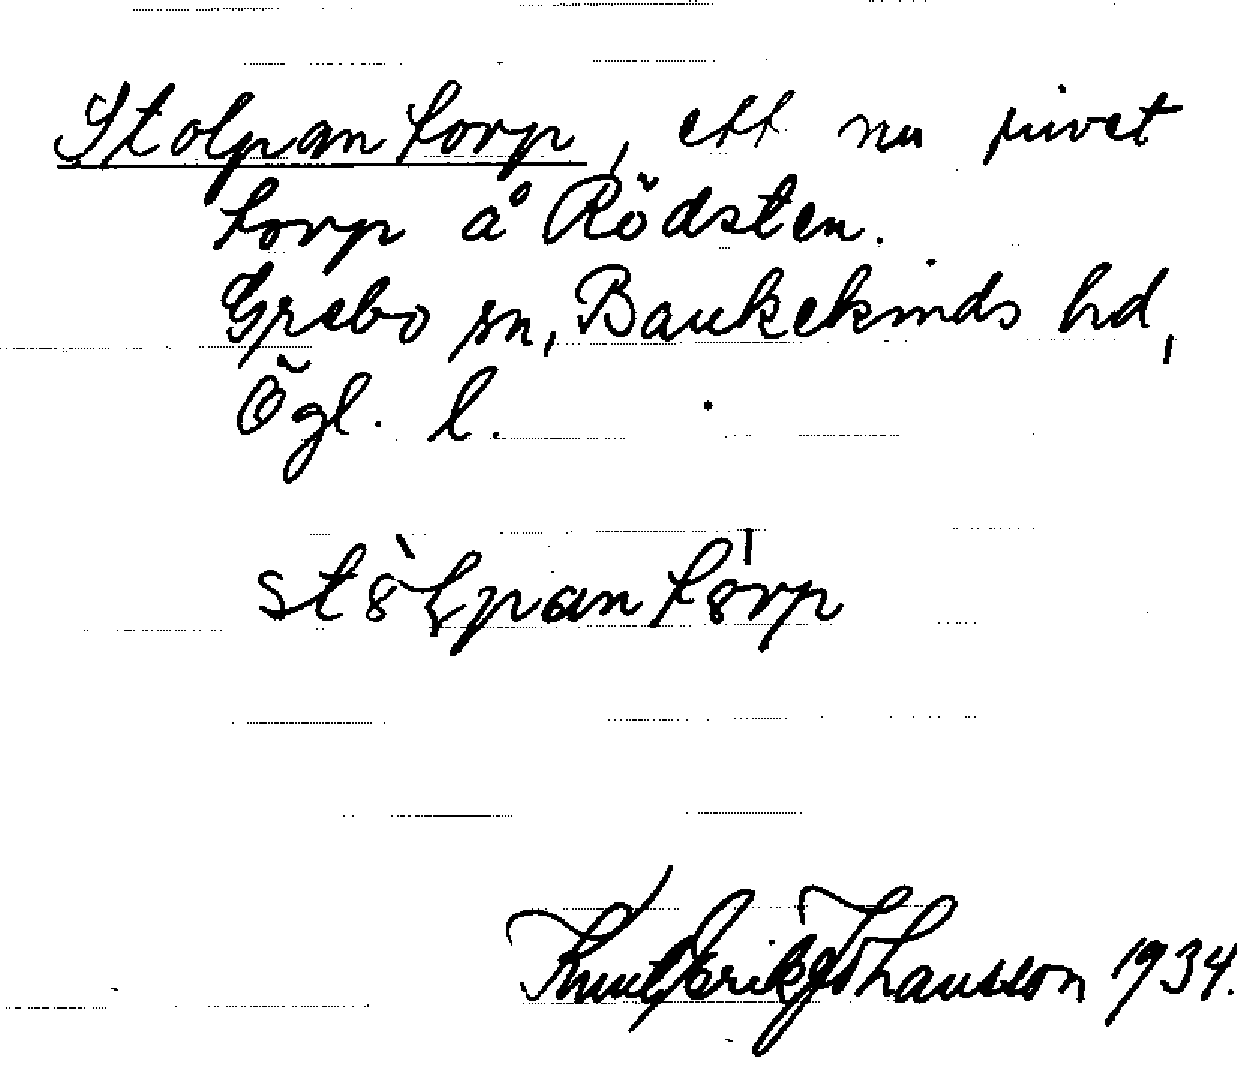 Stolpantorp, ett nu rivet
torp å Rödsten.
Grebo sn, Bankekinds hd,
Ögl. l.
Knut Erik Johansson 1934.